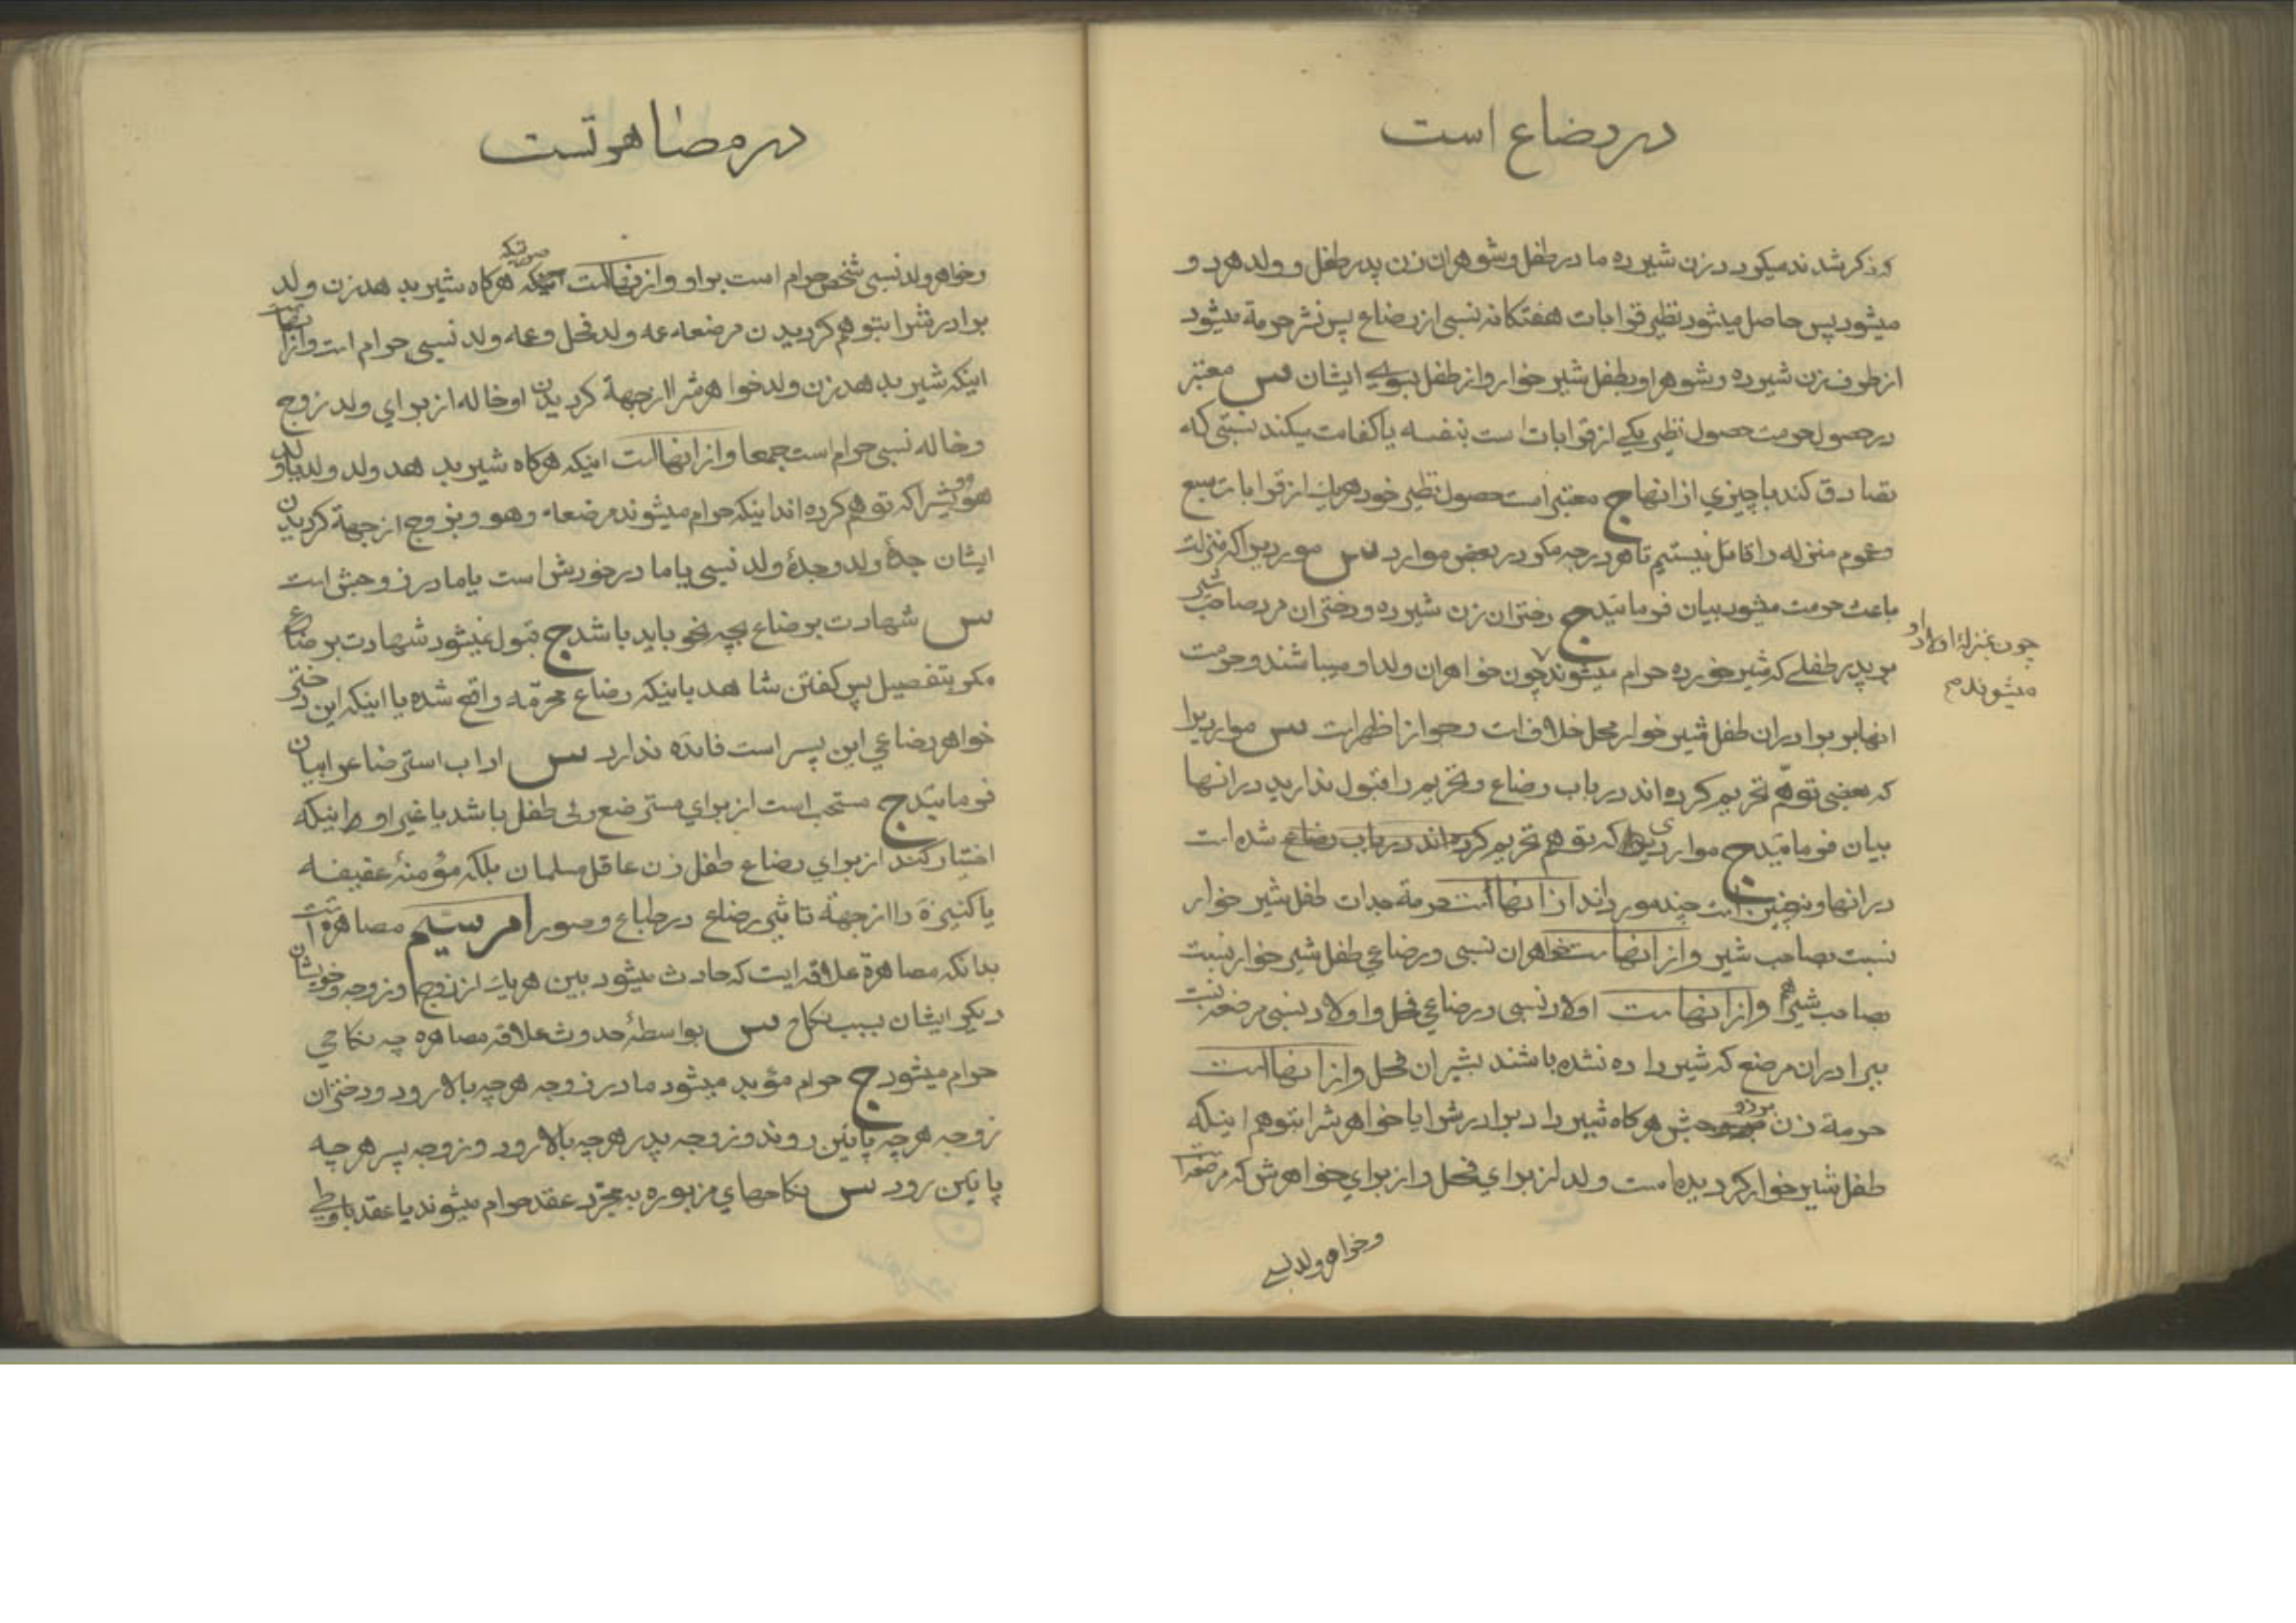 در رضاع است
که ذکر شدند میگردد زن شیرده مادر طفل و شوهر ان زن پدر طفل و ولد هر دو
میشود پس حاصل میشود نظیر قرابات هفتکانه نسبی از رضاع پس نشر حرمة میشود
از طرف زن شیرده و شوهر او بطفل شیر خوار و از طفل بسوی ایشان س معتبر
در حصول حرمت حصول نظیر یکی از قرابات است بنفسه یا کفایت میکند نسبتی که
تصادق کند با چیزی از انها ج معتبر است حصول نظیر خود هر یک از قرابات سبع
و عموم منزله را قائل نیستیم تا هر درجه مکر در بعض موارد س موردیرا که منزلت
باعث حرمت میشود بیان فرمائید ج دختران زن شیرده و دختران مرد صاحب شیر
بر پدر طفلی که شیر خورده حرام میشوند چون خواهران ولد او میباشند و حرمت
چون بمنزلهٔ اولاد او
میشوند م
انها بر برادران طفل شیر خوار محل خلاف است و جواز اظهر است س مواردیرا
که بعضی توهّم تحریم کرده اند در باب رضاع و تحریم را قبول ندارید در انها
بیان فرمائید ج مواردی که توهم تحریم کرده اند در باب رضاع شده است
در انها و نه چنین است چند مورد اند از انها است حرمة جدات طفل شیر خوار
نسبت بصاحب شیر و از انها است خواهران نسبی و رضاعی طفل شیر خوار نسبت
بصاحب شیر هم و از انها است اولاد نسبی و رضاعی فحل و اولاد نسبی مرضعه نسبت
ببرادران مرضع که شیر داده نشده باشند بشیر ان فحل و از انها است
حرمة زن بر زوجش هرکاه شیر داد برادرش را یا خواهرش را بتوهم اینکه
طفل شیر خوار کردیده است ولد از برای فحل و از برای خواهرش که مرضعه است
و خواهر ولد نسبی
در مصاهرتست
و خواهر ولد نسبی شخص حرام است بر او و از انها است صورتیکه هرکاه شیر بدهد زن ولد
برادرش را بتوهم کردیدن مرضعه عمه ولد فحل و عمه ولد نسبی حرام است و از انها است
اینکه شیر بدهد زن ولد خواهرش را از جهة کردیدن او خاله از برای ولد زوج
و خاله نسبی حرام است جمعا و از انها است اینکه هرکاه شیر بدهد ولد ولد یا ولد
هوویش را که توهم کرده اند اینکه حرام میشوند مرضعه و هوو بزوج از جهة کردیدن
ایشان جدهٔ ولد و جدهٔ ولد نسبی یا مادر خودش است یا مادر زوجش است
س شهادت بر رضاع بچه نحو باید باشد ج قبول نمیشود شهادت بر رضاع
مکر بتفصیل پس کفتن شاهد باینکه رضاع محرّمه واقع شده یا اینکه این دختر
خواهر رضاعی این پسر است فایده ندارد س اداب استرضاع را بیان
فرمائید ج مستحب است از برای مسترضع ولی طفل باشد یا غیر او اینکه
اختیار کند از برای رضاع طفل زن عاقل مسلمان بلکه مؤمنهٔ عفیفه
پاکیزه را از جهة تاثیر رضاع در طباع و صور امر سیّم مصاهره است
بدانکه مصاهرة علاقه ایست که حادث میشود بین هر یک از زوج و زوجه و خویشان
دیکر ایشان بسبب نکاح س بواسطهٔ حدوث علاقه مصاهره چه نکاحی
حرام میشود ج حرام مؤبد میشود مادر زوجه هرچه بالا رود و دختران
زوجه هرچه پائین روند و زوجه پدر هرچه بالا رود و زوجه پسر هرچه
پائین رود س نکاحهای مزبوره بمجرّد عقد حرام میشوند یا عقد با وطی